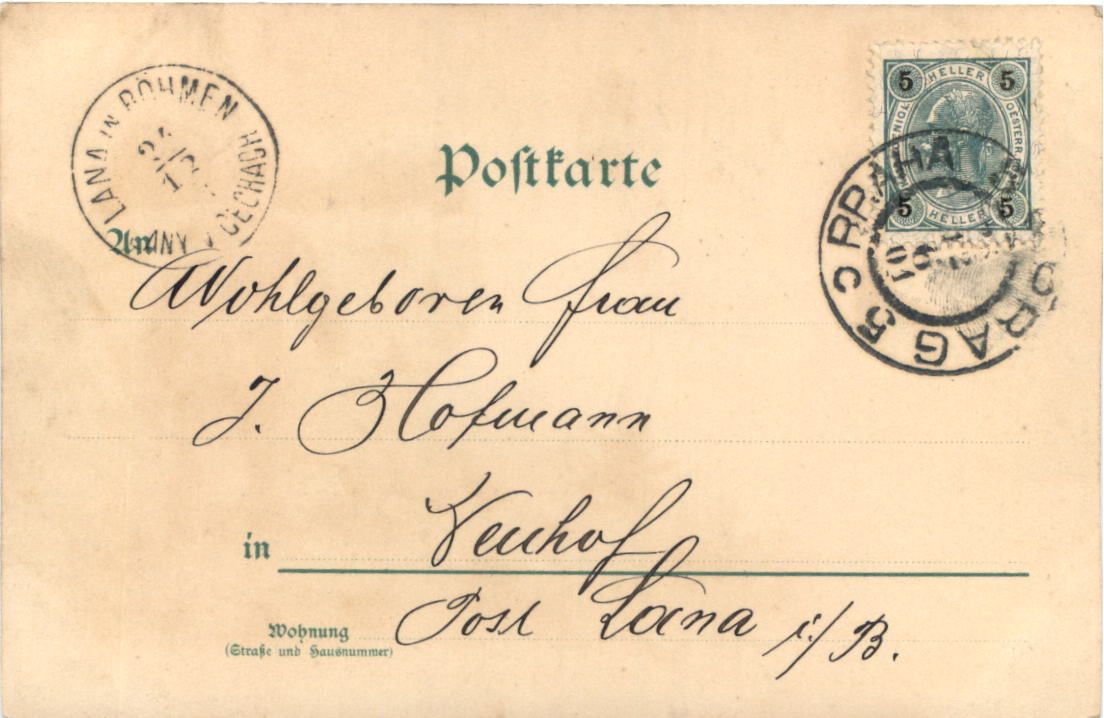 LANA IN BÖHMEN
24
LANY V ČECHÁCH
5 HELLER 5
5 HELLER 5
PRAHA
PRAG
5 C
01
Postkarte
An
Wohlgeboren Frau
J. Hofmann
in Neuhof
Post Lana i/B.
Wohnung
(Straße und Hausnummer)